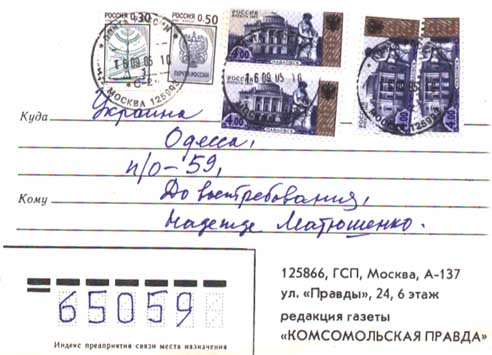 РОССИЯ 0.30
РОССИЯ 0.50
ПОЧТА РОССИИ
РОССИЯ
4.00
ПАВЛОВСК
РОССИЯ
4.00
ПАВЛОВСК
4.00
4.00
МОСКВА 125993
16 09 05 10
16 09 05 10
Куда Украина
Одесса,
п/о-59,
Кому До востребования,
Надежде Матюшенко.
65059
Индекс предприятия связи места назначения
125866, ГСП, Москва, А-137
ул. «Правды», 24, 6 этаж
редакция газеты
«КОМСОМОЛЬСКАЯ ПРАВДА»